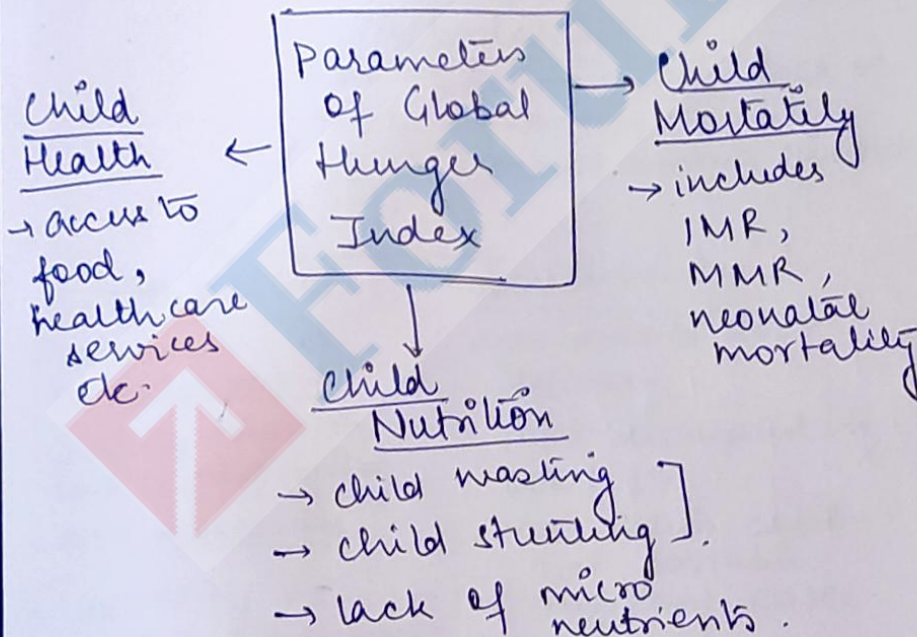 Parameters
of Global
Hunger
Index
Child
Health
→ access to
food,
healthcare
services
etc.
Child
Mortatily
→ includes
IMR,
MMR,
neonatal
mortality
Child
Nutrition
→ child wasting
→ child stunting
→ lack of micro
neutrients.
Forum